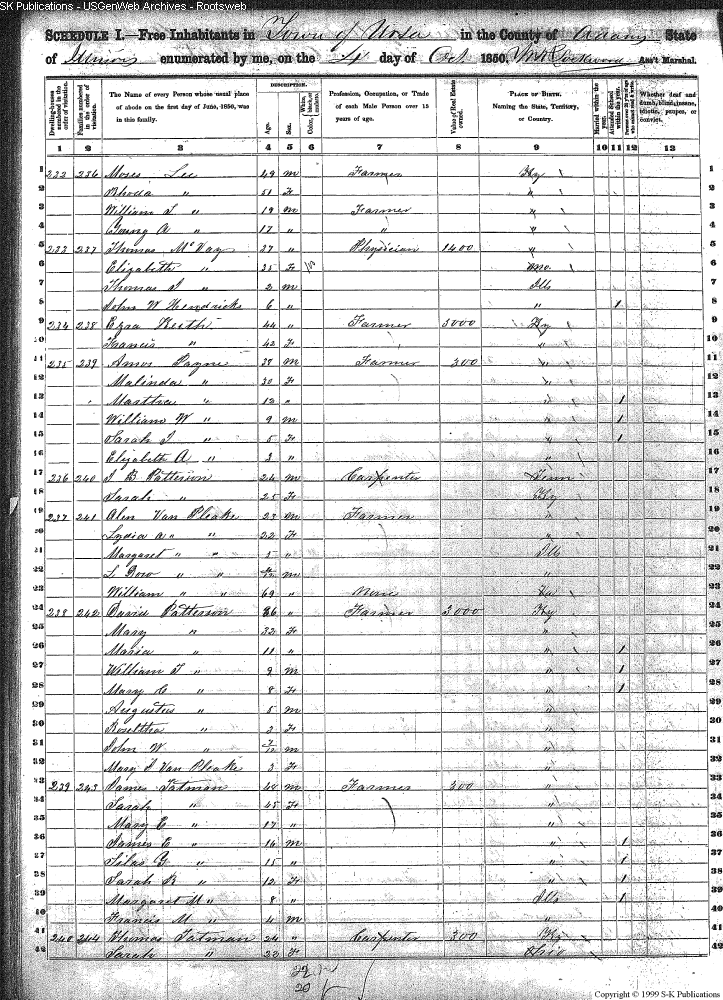 SK Publications - USGenWeb Archives - Rootsweb
SCHEDULE I.—Free Inhabitants in Town of Ursa in the County of Adams State
of Illinois enumerated by me, on the day of Oct 1850. Ass't Marshal.
Dwelling-houses numbered in the order of visitation. Families numbered in the order of visitation. The Name of every Person whose usual place of abode on the first day of June, 1850, was in this family. DESCRIPTION. Age. Sex. Color, White, black, or mulatto. Profession, Occupation, or Trade of each Male Person over 15 years of age. Value of Real Estate owned. PLACE OF BIRTH. Naming the State, Territory, or Country. Married within the year. Attended School within the year. Persons over 20 y'rs of age who cannot read & write. Whether deaf and dumb, blind, insane, idiotic, pauper, or convict.
1 2 3 4 5 6 7 8 9 10 11 12 13
1 232 236 Moses Lee 49 m Farmer Ky 1
2 Rhoda " 51 F " 2
3 William " 19 m Farmer " 3
4 Georg A " 17 " " " 4
5 233 237 Thomas McVay 27 " Physician 1400 " 5
6 Elizabeth " 25 F Mo. 6
7 Thomas " 2 m Ills 7
8 John W Hendricks 6 " " 1 8
9 234 238 Ezra Keith 44 " Farmer 3000 Ky 9
10 Francis " 42 F " 10
11 235 239 Amos Payne 38 m Farmer 300 " 11
12 Malinda " 30 F " 12
13 Martha " 12 " " 1 13
14 William W " 9 m " 1 14
15 Sarah " 5 F " 1 15
16 Elizabeth A " 3 " " 16
17 236 240 B Patterson 24 m Carpenter Tenn 17
18 Sarah " 25 F Ky 18
19 237 241 Van Pleake 23 m Farmer " 19
20 Lydia A " " 22 F " 20
21 Margaret " " " Ills 21
22 " " m " 22
23 William " " 69 " None 23
24 238 242 David Patterson 36 " Farmer 3000 Ky 24
25 Mary " 32 F " 25
26 Maria " 11 " " 1 26
27 William " 9 m " 1 27
28 Mary C " 8 F " 1 28
29 Augustus " 5 m " 29
30 Roseltha " 2 F " 30
31 John W " m " 31
32 Mary Van Pleake 3 F " 32
33 239 243 James Tatman 48 m Farmer 300 " 33
34 Sarah " 45 F " 34
35 Mary E " 17 " " 35
36 James E " 16 m " 1 36
37 Silas G " 15 " " 1 37
38 Sarah R " 12 F " 1 38
39 Margaret M " 8 " Ills 1 39
40 Francis M " 4 m " 40
41 240 244 Thomas Tatman 24 " Carpenter 300 Ky 41
42 Sarah " 23 F Ohio 42
22
20
Copyright © 1999 S-K Publications